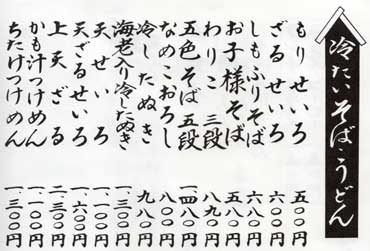 冷たいそば・うどん
もりせいろ 五〇〇円
ざるせいろ 六〇〇円
しもふりそば 六八〇円
お子様そば 五八〇円
わりこ 三段 八九〇円
五色そば 五段 一、四八〇円
なめこおろし 八〇〇円
冷したぬき 九八〇円
海老入り冷したぬき 一、三〇〇円
天せいろ 一、一〇〇円
天ざるせいろ 一、六〇〇円
上天ざる 二、三〇〇円
かも汁つけめん 一、一〇〇円
ちたけつけめん 一、三〇〇円